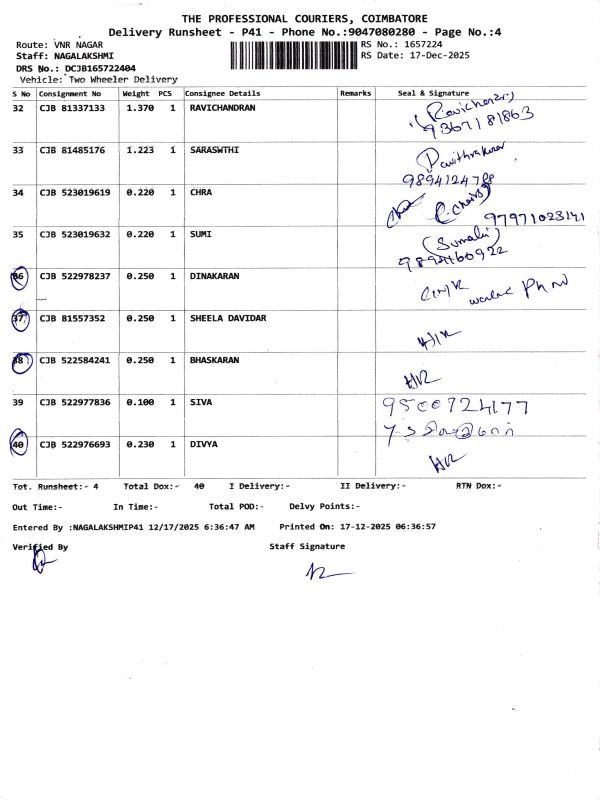 THE PROFESSIONAL COURIERS, COIMBATORE
Delivery Runsheet - P41 - Phone No.:9047080280 - Page No.:4
Route: VNR NAGAR RS No.: 1657224
Staff: NAGALAKSHMI RS Date: 17-Dec-2025
DRS No.: DCJB165722404
Vehicle: Two Wheeler Delivery
S No Consignment No Weight PCS Consignee Details Remarks Seal & Signature
32 CJB 81337133 1.370 1 RAVICHANDRAN
9367181863
33 CJB 81485176 1.223 1 SARASWTHI
9894124788
34 CJB 523019619 0.220 1 CHRA
97971023141
35 CJB 523019632 0.220 1 SUMI (Sumathi)
9894460922
36 CJB 522978237 0.250 1 DINAKARAN
37 CJB 81557352 0.250 1 SHEELA DAVIDAR
38 CJB 522584241 0.250 1 BHASKARAN
39 CJB 522977836 0.100 1 SIVA 9500724177
40 CJB 522976693 0.230 1 DIVYA
Tot. Runsheet:- 4 Total Dox:- 40 I Delivery:- II Delivery:- RTN Dox:-
Out Time:- In Time:- Total POD:- Delvy Points:-
Entered By :NAGALAKSHMIP41 12/17/2025 6:36:47 AM Printed On: 17-12-2025 06:36:57
Verified By Staff Signature